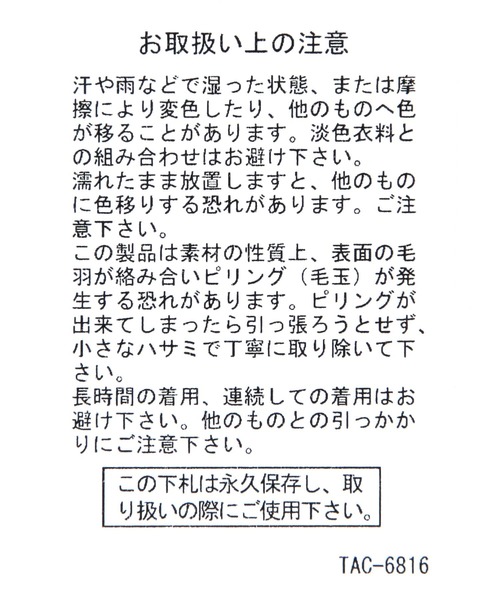 お取扱い上の注意
汗や雨などで湿った状態、または摩
擦により変色したり、他のものへ色
が移ることがあります。淡色衣料と
の組み合わせはお避け下さい。
濡れたまま放置しますと、他のもの
に色移りする恐れがあります。ご注
意下さい。
この製品は素材の性質上、表面の毛
羽が絡み合いピリング（毛玉）が発
生する恐れがあります。ピリングが
出来てしまったら引っ張ろうとせず、
小さなハサミで丁寧に取り除いて下
さい。
長時間の着用、連続しての着用はお
避け下さい。他のものとの引っかか
りにご注意下さい。
この下札は永久保存し、取
り扱いの際にご使用下さい。
TAC-6816